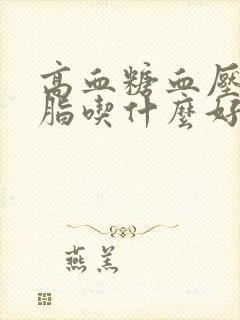 高血糖血壓
脂喫什麼好
燕羔